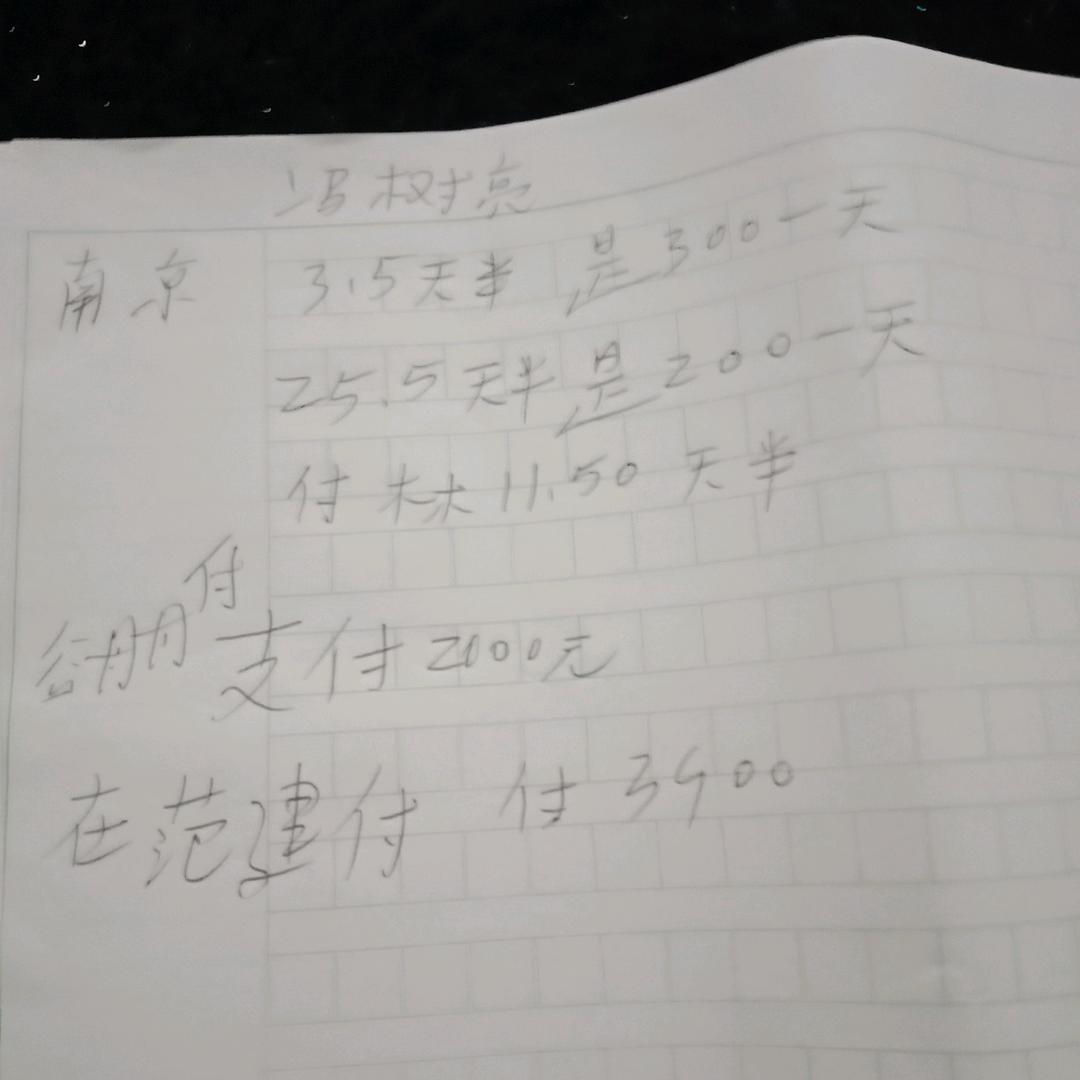 冯树亮
南京 3.5天半是300一天
25.5天半是200一天
付林11.50天半
付
支付2000元
在范建付 付3900